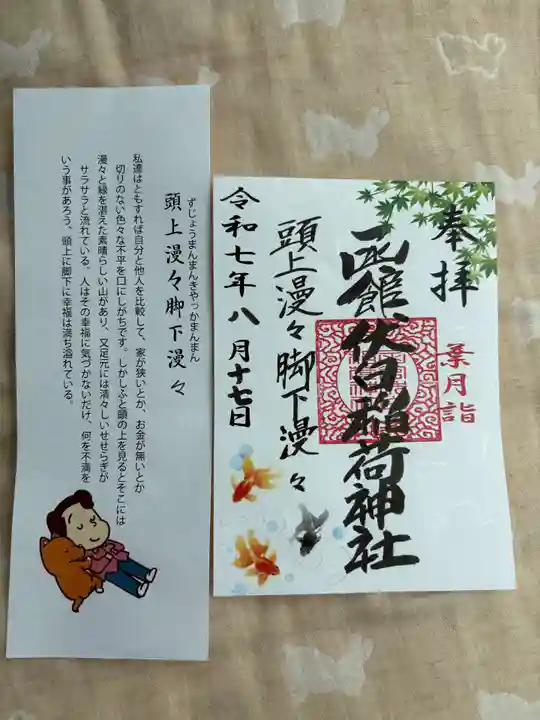 奉拝
葉月詣
函館伏白稲荷神社
頭上漫々脚下漫々
令和七年八月十七日
ずじょうまんまんきゃっかまんまん
頭上漫々脚下漫々
私達はともすれば自分と他人を比較して、家が狭いとか、お金が無いとか
切りのない色々な不平を口にしがちです。しかしふと頭の上を見るとそこには
漫々と緑を湛えた素晴らしい山があり、又足元には清々しいせせらぎが
サラサラと流れている。人はその幸福に気づかないだけ、何を不満を
いう事があろう、頭上に脚下に幸福は満ち溢れている。